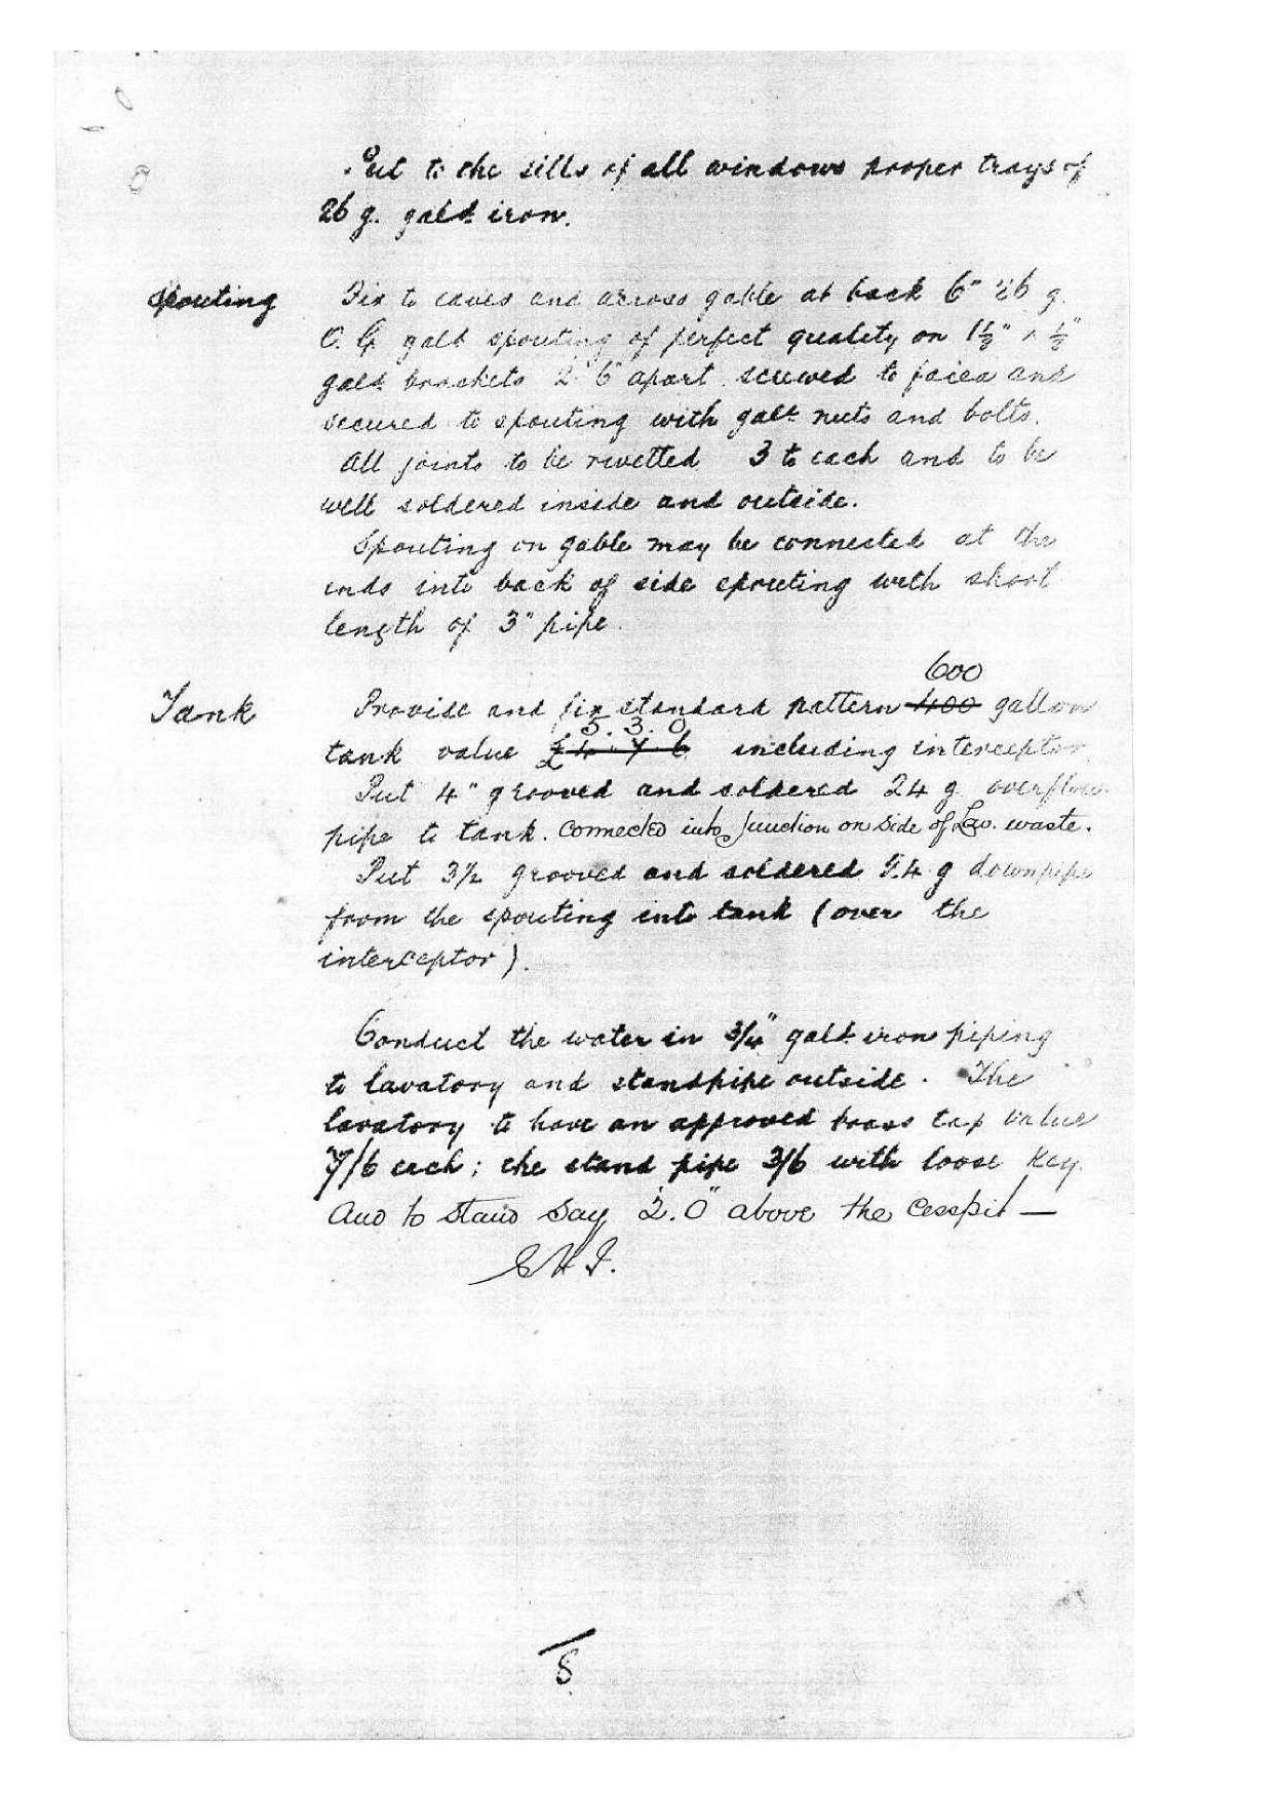 Put to the sills of all windows proper trays of
26 g. gald iron.
Spouting Fix to eaves and across gable at back 6" 26 g.
O.G. gald spouting of perfect quality on 1½" x ½"
gald brackets 2' 6" apart screwed to facia and
secured to spouting with gald nuts and bolts.
All joints to be rivetted 3 to each and to be
well soldered inside and outside.
Spouting on gable may be connected at the
ends into back of side spouting with short
length of 3" pipe.
600
Tank Provide and fix standard pattern 400 gallon
5. 3. 0
tank value £4. 7. 6 including interceptor
Put 4" grooved and soldered 24 g. overflow
pipe to tank. connected into Junction on side of Lav. waste.
Put 3½ grooved and soldered 24 g downpipe
from the spouting into tank (over the
interceptor).
Conduct the water in ¾" gald iron piping
to lavatory and standpipe outside. The
lavatory to have an approved brass tap value
7/6 each; the stand pipe 3/6 with loose key.
And to stand say 2'.0" above the Cesspit —
8